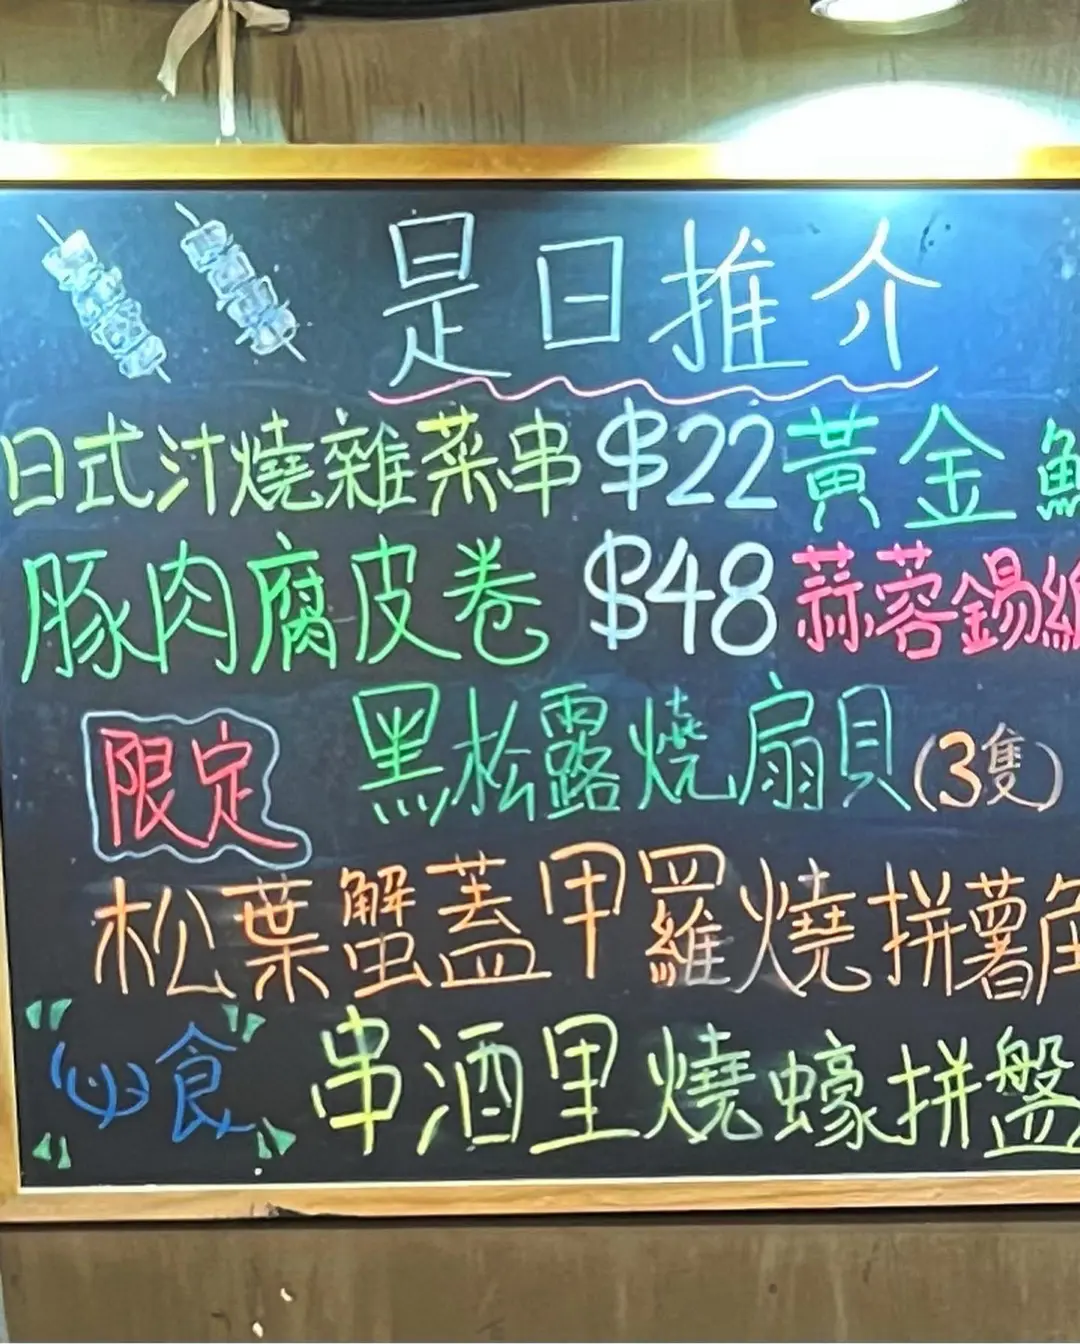 是日推介
日式汁燒雜菜串 $22 黃金
豚肉腐皮卷 $48 蒜蓉錫紙
限定 黑松露燒扇貝(3隻)
松葉蟹蓋甲羅燒拼薯角
必食 串酒里燒蠔拼盤